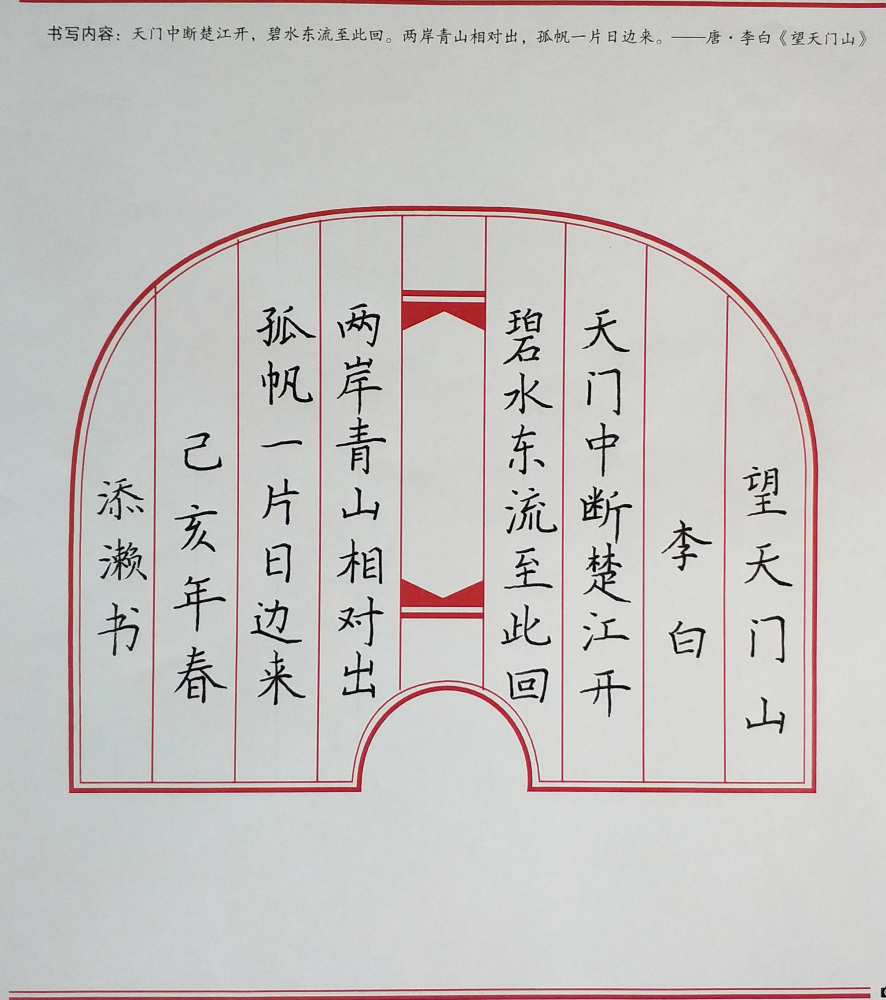 书写内容：天门中断楚江开，碧水东流至此回。两岸青山相对出，孤帆一片日边来。——唐·李白《望天门山》
望天门山
李白
天门中断楚江开
碧水东流至此回
两岸青山相对出
孤帆一片日边来
己亥年春
添濑书